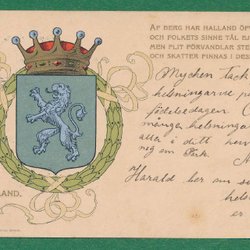 AF BERG HAR HALLAND ÖF
OCH FOLKETS SINNE TÅL EJ
MEN FLIT FÖRVANDLAR STE
OCH SKATTER FINNAS I DES
Mycken tack
helsningarne på
födelsedagen
många helsninga
alla i ditt hem
Harald ber om s
hels
er
LAND.